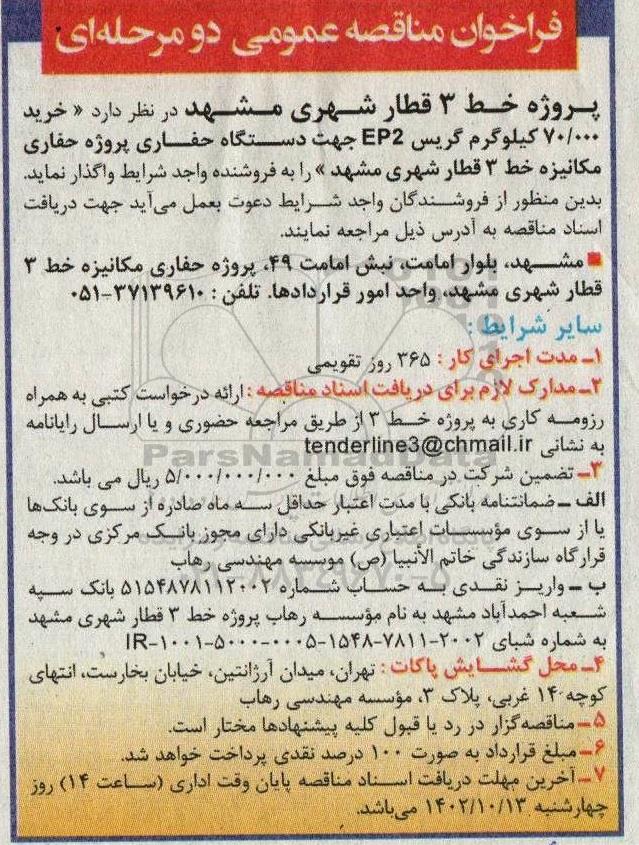 فراخوان مناقصه عمومی دو مرحله‌ای
پروژه خط ۳ قطار شهری مشهد در نظر دارد « خرید
۷۰/۰۰۰ کیلوگرم گریس EP2 جهت دستگاه حفاری پروژه حفاری
مکانیزه خط ۳ قطار شهری مشهد » را به فروشنده واجد شرایط واگذار نماید.
بدین منظور از فروشندگان واجد شرایط دعوت بعمل می‌آید جهت دریافت
اسناد مناقصه به آدرس ذیل مراجعه نمایند.
■ مشهد، بلوار امامت، نبش امامت ۴۹، پروژه حفاری مکانیزه خط ۳
قطار شهری مشهد، واحد امور قراردادها. تلفن : ۳۷۱۳۹۶۱۰-۰۵۱
سایر شرایط :
۱ـ مدت اجرای کار : ۳۶۵ روز تقویمی
۲ـ مدارک لازم برای دریافت اسناد مناقصه : ارائه درخواست کتبی به همراه
رزومه کاری به پروژه خط ۳ از طریق مراجعه حضوری و یا ارسال رایانامه
به نشانی tenderline3@chmail.ir
ParsNamadData
۳ـ تضمین شرکت در مناقصه فوق مبلغ ۵/۰۰۰/۰۰۰/۰۰۰ ریال می باشد.
الف ـ ضمانتنامه بانکی با مدت اعتبار حداقل سه ماه صادره از سوی بانک‌ها
یا از سوی مؤسسات اعتباری غیربانکی دارای مجوز بانک مرکزی در وجه
قرارگاه سازندگی خاتم الأنبیا (ص) موسسه مهندسی رهاب
ب ـ واریز نقدی به حساب شماره ۵۱۵۴۸۷۸۱۱۲۰۰۲ بانک سپه
شعبه احمدآباد مشهد به نام مؤسسه رهاب پروژه خط ۳ قطار شهری مشهد
به شماره شبای IR-۱۰۰۱-۵۰۰۰-۰۰۰۵-۱۵۴۸-۷۸۱۱-۲۰۰۲
۴ـ محل گشایش پاکات : تهران، میدان آرژانتین، خیابان بخارست، انتهای
کوچه ۱۴ غربی، پلاک ۳، مؤسسه مهندسی رهاب
۵ ـ مناقصه‌گزار در رد یا قبول کلیه پیشنهادها مختار است.
۶ـ مبلغ قرارداد به صورت ۱۰۰ درصد نقدی پرداخت خواهد شد.
۷ـ آخرین مهلت دریافت اسناد مناقصه پایان وقت اداری (ساعت ۱۴) روز
چهارشنبه ۱۴۰۲/۱۰/۱۳ می‌باشد.